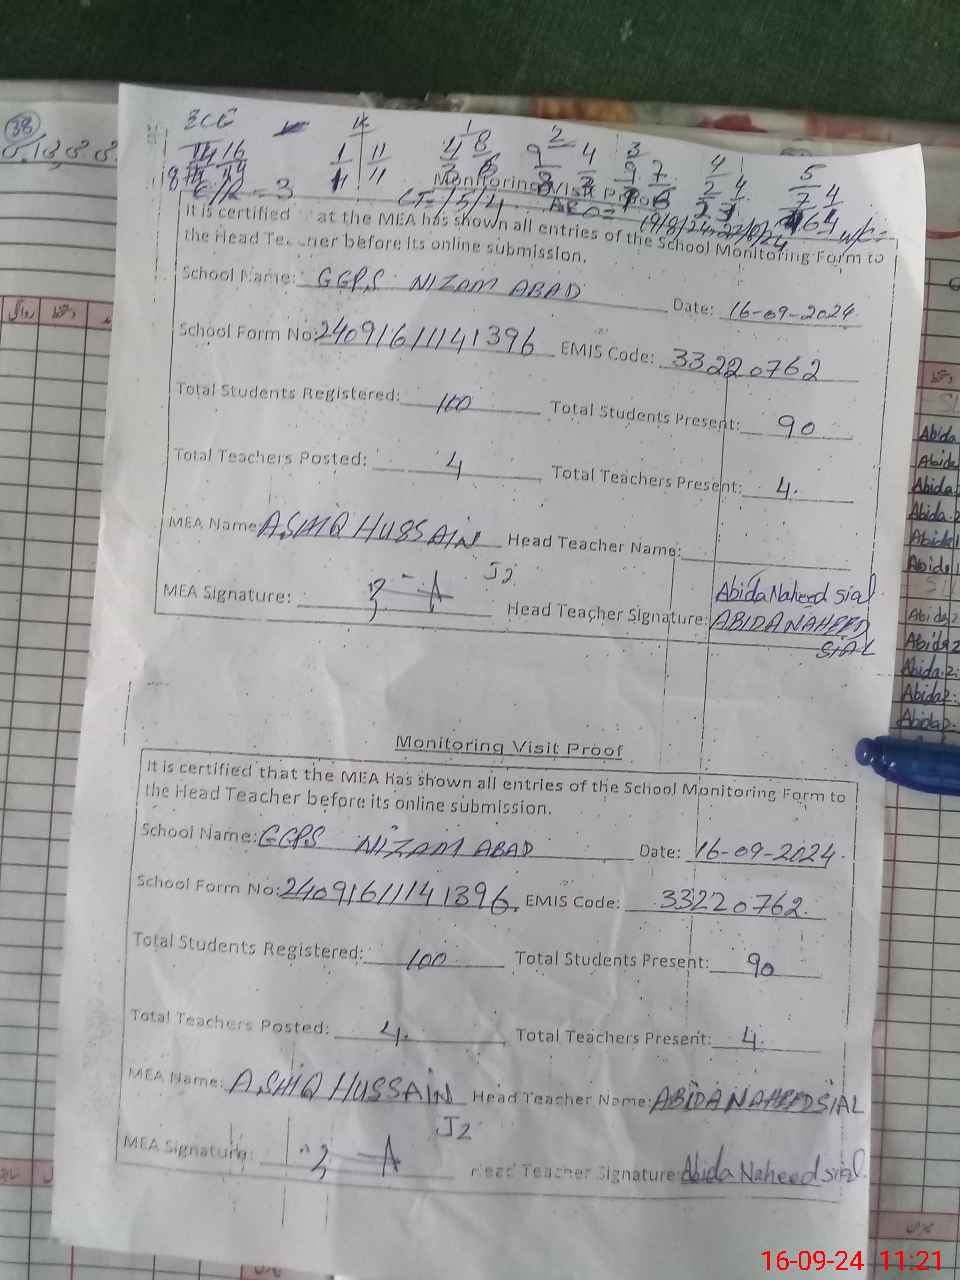 38
ECE
K
1
2
3
4
5
14 16
1 11
4 8
9 4
9 7
2 4
7 4
C/R = 3
11
Monitoring Visit Proof
19/8/24,
It is certified at the MEA has shown all entries of the School Monitoring Form to
the Head Teacher before its online submission.
School Name: GGPS NIZAM ABAD Date: 16-09-2024
School Form No: 24091611141396 EMIS Code: 33220762
Total Students Registered: 100 Total Students Present: 90
Total Teachers Posted: 4 Total Teachers Present: 4.
MEA Name: ASHIQ HUSSAIN Head Teacher Name:
J2
MEA Signature: Head Teacher Signature: Abida Naheed Sial
ABIDA NAHEED
SIAL
Monitoring Visit Proof
It is certified that the MEA has shown all entries of the School Monitoring Form to
the Head Teacher before its online submission.
School Name: GGPS NIZAM ABAD Date: 16-09-2024.
School Form No: 24091611141396. EMIS Code: 33220762.
Total Students Registered: 100 Total Students Present: 90
Total Teachers Posted: 4. Total Teachers Present: 4.
MEA Name: ASHIQ HUSSAIN Head Teacher Name: ABIDA NAHEED SIAL
J2
MEA Signature: Head Teacher Signature: Abida Naheed Sial
Abida
Abida
Abida
Abida.2
Abida
Abida
Abida2
Abida2
Abida.2
Abida2
Abida2
16-09-24 11:21